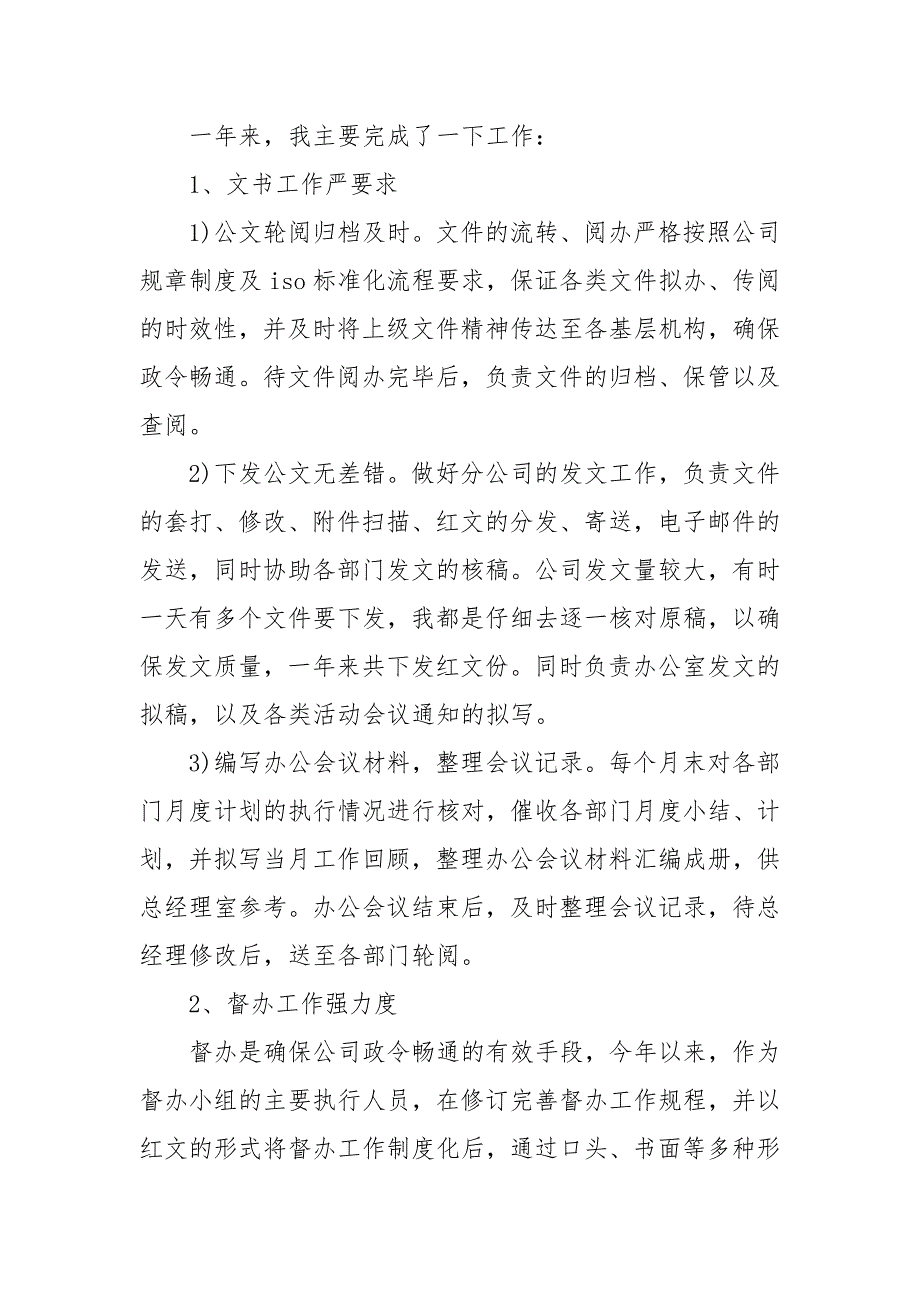 一年来，我主要完成了一下工作：
1、文书工作严要求
1)公文轮阅归档及时。文件的流转、阅办严格按照公司
规章制度及 iso 标准化流程要求，保证各类文件拟办、传阅
的时效性，并及时将上级文件精神传达至各基层机构，确保
政令畅通。待文件阅办完毕后，负责文件的归档、保管以及
查阅。
2)下发公文无差错。做好分公司的发文工作，负责文件
的套打、修改、附件扫描、红文的分发、寄送，电子邮件的
发送，同时协助各部门发文的核稿。公司发文量较大，有时
一天有多个文件要下发，我都是仔细去逐一核对原稿，以确
保发文质量，一年来共下发红文份。同时负责办公室发文的
拟稿，以及各类活动会议通知的拟写。
3)编写办公会议材料，整理会议记录。每个月末对各部
门月度计划的执行情况进行核对，催收各部门月度小结、计
划，并拟写当月工作回顾，整理办公会议材料汇编成册，供
总经理室参考。办公会议结束后，及时整理会议记录，待总
经理修改后，送至各部门轮阅。
2、督办工作强力度
督办是确保公司政令畅通的有效手段，今年以来，作为
督办小组的主要执行人员，在修订完善督办工作规程，并以
红文的形式将督办工作制度化后，通过口头、书面等多种形